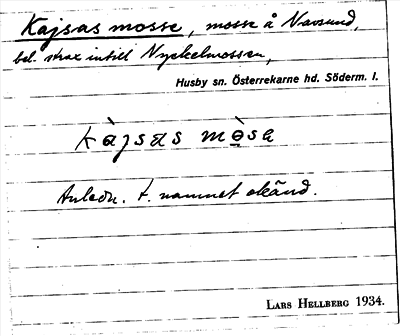 Kajsas mosse, mosse å Vavsund,
bel. strax intill Nyckelmossen,
Husby sn. Österrekarne hd. Söderm. l.
kàjsas mòsa
Anledn. t. namnet okänd.
LARS HELLBERG 1934.